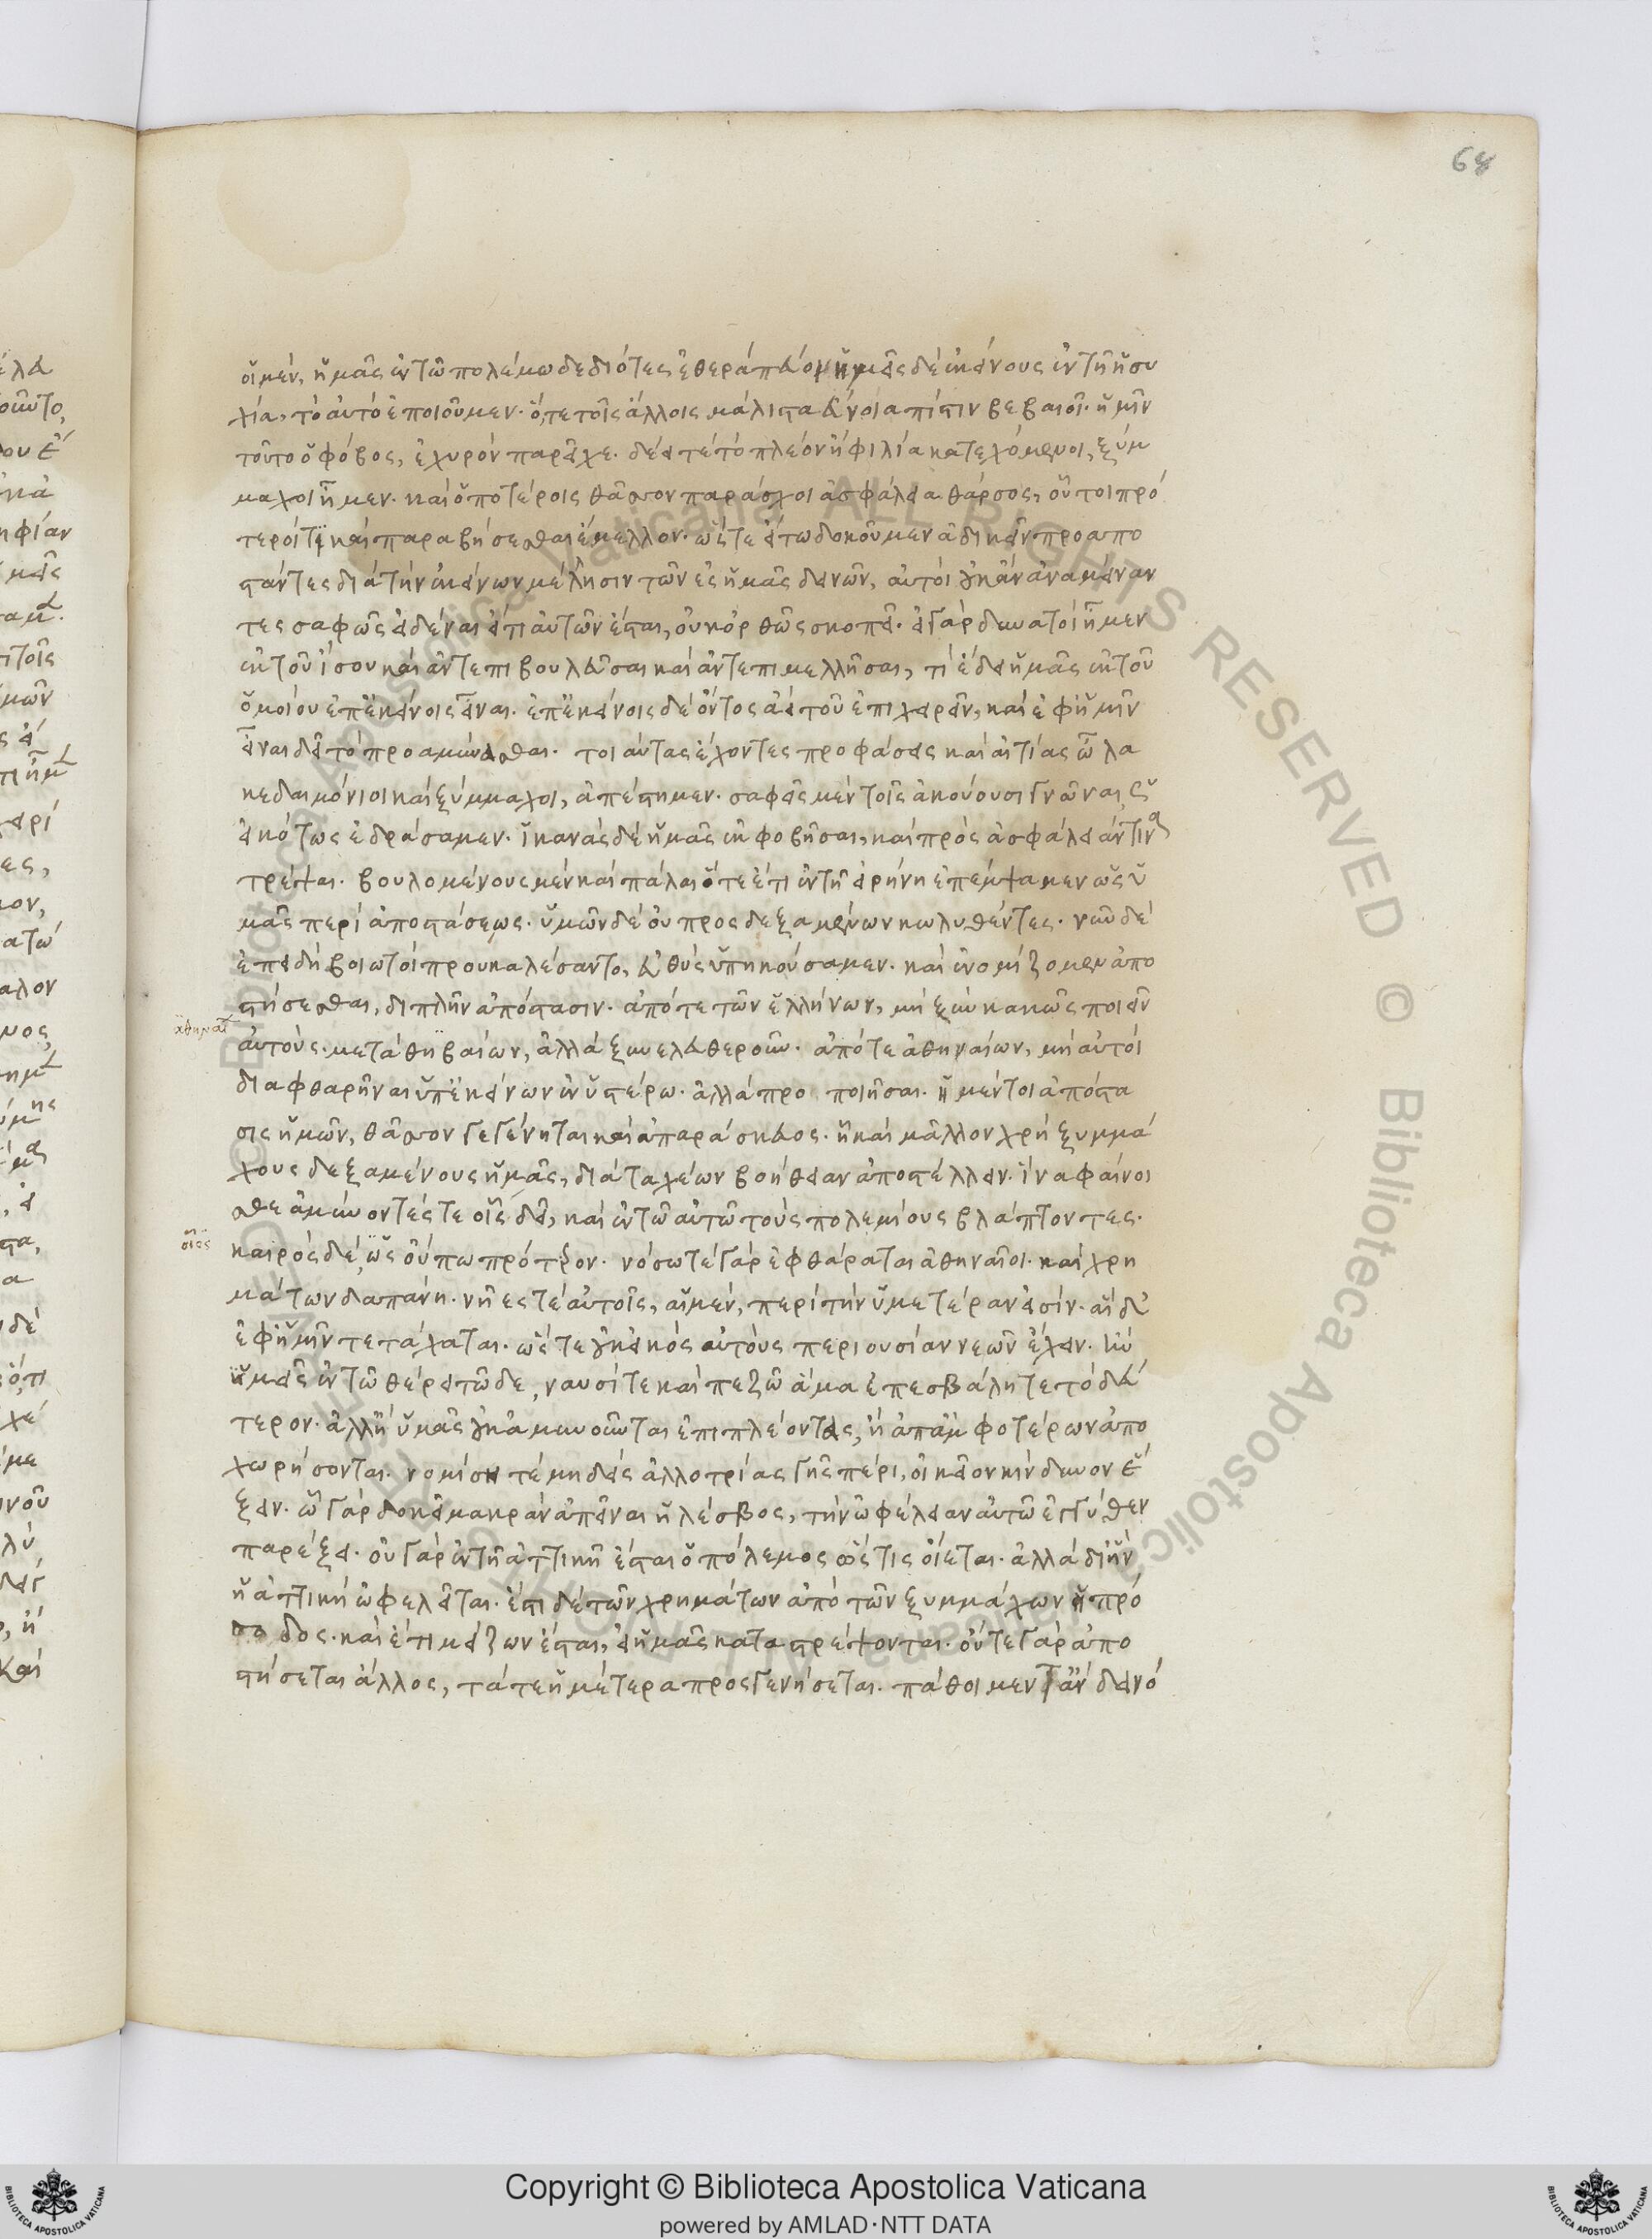 68
οἵ μέν, ἡμᾶς ἐν τῶ πολέμω δεδιότες ἐθεράπευον· ἡμεῖς δὲ ἐκείνους ἐν τῆ ἡσυ
χία, τὸ αὐτὸ ἐποιοῦμεν. ὅ,τε τοῖς ἄλλοις μάλιστα εὔνοια πίστιν βεβαιοῖ. ἡμῖν
τοῦτο ὁ φόβος, ἐχυρὸν παρεῖχε. δέει τε τὸ πλέον ἢ φιλία κατεχόμενοι, ξύμ
μαχοι ἦμεν. καὶ ὁποτέροις θᾶσσον παράσχοι ἀσφάλεια θάρσος, οὗτοι πρό
τεροί τι καὶ παραβήσεσθαι ἔμελλον. ὥστε εἴ τω δοκοῦμεν ἀδικεῖν προαπο
στάντες διὰ τὴν ἐκείνων μέλλησιν τῶν ἐς ἡμᾶς δεινῶν, αὐτοὶ οὐκ ἀνταναμείναν
τες σαφῶς εἰδέναι εἴ τι αὐτῶν ἔσται, οὐκ ὀρθῶς σκοπεῖ. εἰ γὰρ δυνατοὶ ἦμεν
ἐκ τοῦ ἴσου καὶ ἀντεπιβουλεῦσαι καὶ ἀντεπιμελλῆσαι, τί ἔδει ἡμᾶς ἐκ τοῦ
ὁμοίου ἐπ' ἐκείνοις εἶναι. ἐπ' ἐκείνοις δὲ ὄντος ἀεὶ τοῦ ἐπιχειρεῖν, καὶ ἐφ' ἡμῖν
εἶναι δεῖ τὸ προαμύνασθαι. τοιαύτας ἔχοντες προφάσεις καὶ αἰτίας ὦ λα
κεδαιμόνιοι καὶ ξύμμαχοι, ἀπέστημεν. σαφεῖς μὲν τοῖς ἀκούουσι γνῶναι ὡς
εἰκότως ἐδράσαμεν. ἱκανὰς δὲ ἡμᾶς ἐκφοβῆσαι, καὶ πρὸς ἀσφάλειάν τινα
τρέψαι. βουλομένους μὲν καὶ πάλαι ὅτε ἔτι ἐν τῆ εἰρήνη ἐπέμψαμεν ὡς ὑ
μᾶς περὶ ἀποστάσεως. ὑμῶν δὲ οὐ προσδεξαμένων κωλυθέντες. νῦν δὲ
ἐπειδὴ βοιωτοὶ προυκαλέσαντο, εὐθὺς ὑπηκούσαμεν. καὶ ἐνομίζομεν ἀπο
στήσεσθαι, διπλῆν ἀπόστασιν. ἀπό τε τῶν ἑλλήνων, μὴ ξὺν κακῶς ποιεῖν
αὐτοὺς μετὰ θηβαίων, ἀλλὰ ξυνελευθεροῦν. ἀπό τε ἀθηναίων, μὴ αὐτοὶ
διαφθαρῆναι ὑπ' ἐκείνων ἐν ὑστέρω. ἀλλὰ προποιῆσαι. ἡ μέντοι ἀπόστα
σις ἡμῶν, θᾶσσον γεγένηται καὶ ἀπαράσκευος. ἧ καὶ μᾶλλον χρὴ ξυμμά
χους δεξαμένους ἡμᾶς, διὰ ταχέων βοήθειαν ἀποστέλλειν. ἵνα φαίνησ
θε ἀμύνοντές τε οἷς δεῖ, καὶ ἐν τῶ αὐτῶ τοὺς πολεμίους βλάπτοντες.
καιρὸς δὲ, ὡς οὔπω πρότερον. νόσω τε γὰρ ἐφθάραται ἀθηναῖοι. καὶ χρη
μάτων δαπάνη. νῆές τε αὐτοῖς, αἱ μέν, περὶ τὴν ὑμετέραν εἰσίν. αἱ δ'
ἐφ' ἡμῖν τετάχαται. ὥστε οὐκ εἰκὸς αὐτοὺς περιουσίαν νεῶν ἔχειν. ἢν
ὑμεῖς ἐν τῶ θέρει τῶδε, ναυσί τε καὶ πεζῶ ἅμα ἐπεσβάλητε τὸ δεύ
τερον. ἀλλ' ἢ ὑμᾶς οὐκ ἀμυνοῦνται ἐπιπλέοντας, ἢ ἀπ' ἀμφοτέρων ἀπο
χωρήσονται. νομίση τε μηδεὶς ἀλλοτρίας γῆς πέρι, οἰκεῖον κίνδυνον ἕ
ξειν. ὧ γὰρ δοκεῖ μακρὰν ἀπεῖναι ἡ λέσβος, τὴν ὠφέλειαν αὐτῶ ἐγγύθεν
παρέξει. οὐ γὰρ ἐν τῆ ἀττικῆ ἔσται ὁ πόλεμος ὥς τις οἴεται. ἀλλὰ δι' ἣν
ἡ ἀττικὴ ὠφελεῖται. ἔστι δὲ τῶν χρημάτων ἀπὸ τῶν ξυμμάχων ἡ πρό
σοδος. καὶ ἔτι μείζων ἔσται, εἰ ἡμᾶς καταστρέψονται. οὔτε γὰρ ἀπο
στήσεται ἄλλος, τά τε ἡμέτερα προσγενήσεται. πάθοιμεν τ' ἂν δεινό
Copyright © Biblioteca Apostolica Vaticana
powered by AMLAD·NTT DATA